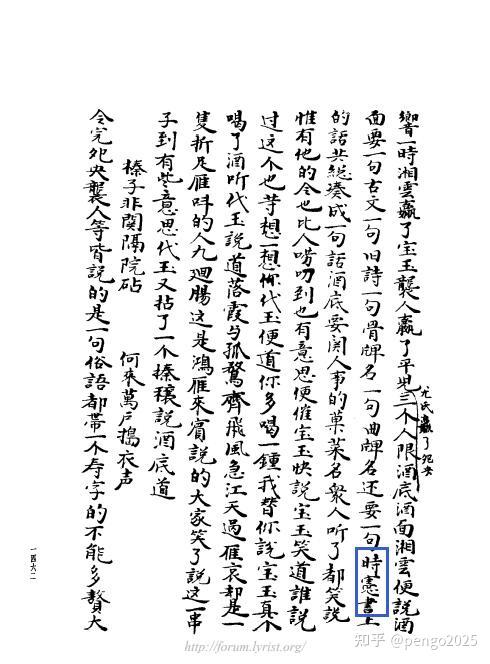 響一時湘雲贏了宝玉襲人贏了平兒三个人限酒底酒面湘雲便説酒
尤氏贏了夗央
面要一句古文一句旧詩一句骨牌名一句曲牌名还要一句時憲書上
的話共総湊成一句話酒底要関人事的菓菜名衆人听了都笑説
惟有他的令也比人唠叨到也有意思便催宝玉快説宝玉笑道誰説
过这个也等想一想你代玉便道你多喝一鍾我替你説宝玉真个
喝了酒听代玉説道落霞与孤鶩齊飛風急江天過雁哀却是一
隻折足雁呌的人九廻腸这是鴻雁來賓説的大家笑了説这一串
子到有些意思代玉又拈了一个榛穰説酒底道
榛子非関隔院砧　何來萬户搗衣声
令完夗央襲人等皆説的是一句俗語都帶一个寿字的不能多贅大
一四六二
http://forum.lyrist.org/
知乎 @pengo2025